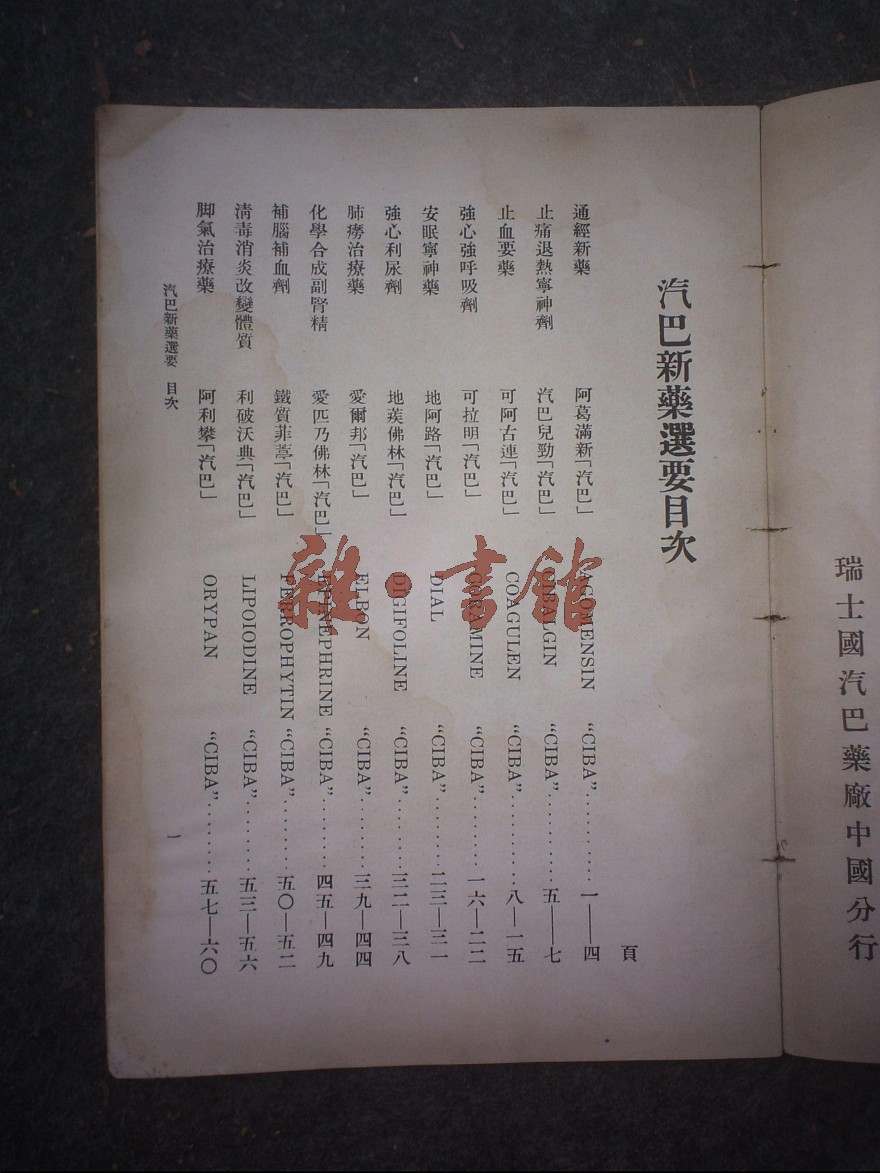 瑞士國汽巴藥廠中國分行
汽巴新藥選要目次
頁
通經新藥 阿葛滿新「汽巴」 AGOMENSIN “CIBA”.........一——四
止痛退熱寧神劑 汽巴兒勁「汽巴」 CIBALGIN “CIBA”..........五——七
止血要藥 可阿古連「汽巴」 COAGULEN “CIBA”..........八—一五
強心強呼吸劑 可拉明「汽巴」 CORAMINE “CIBA”........一六—二二
安眠寧神藥 地阿路「汽巴」 DIAL “CIBA”........二三—三一
強心利尿劑 地莢佛林「汽巴」 DIGIFOLINE “CIBA”........三二—三八
肺癆治療藥 愛爾邦「汽巴」 ELBON “CIBA”........三九—四四
化學合成副腎精 愛匹乃佛林「汽巴」 EPINEPHRINE “CIBA”........四五—四九
補腦補血劑 鐵質菲葦「汽巴」 FERROPHYTIN “CIBA”........五〇—五二
清毒消炎改變體質 利破沃典「汽巴」 LIPOIODINE “CIBA”........五三—五六
脚氣治療藥 阿利攀「汽巴」 ORYPAN “CIBA”........五七—六〇
汽巴新藥選要 目次
一
雜·書館